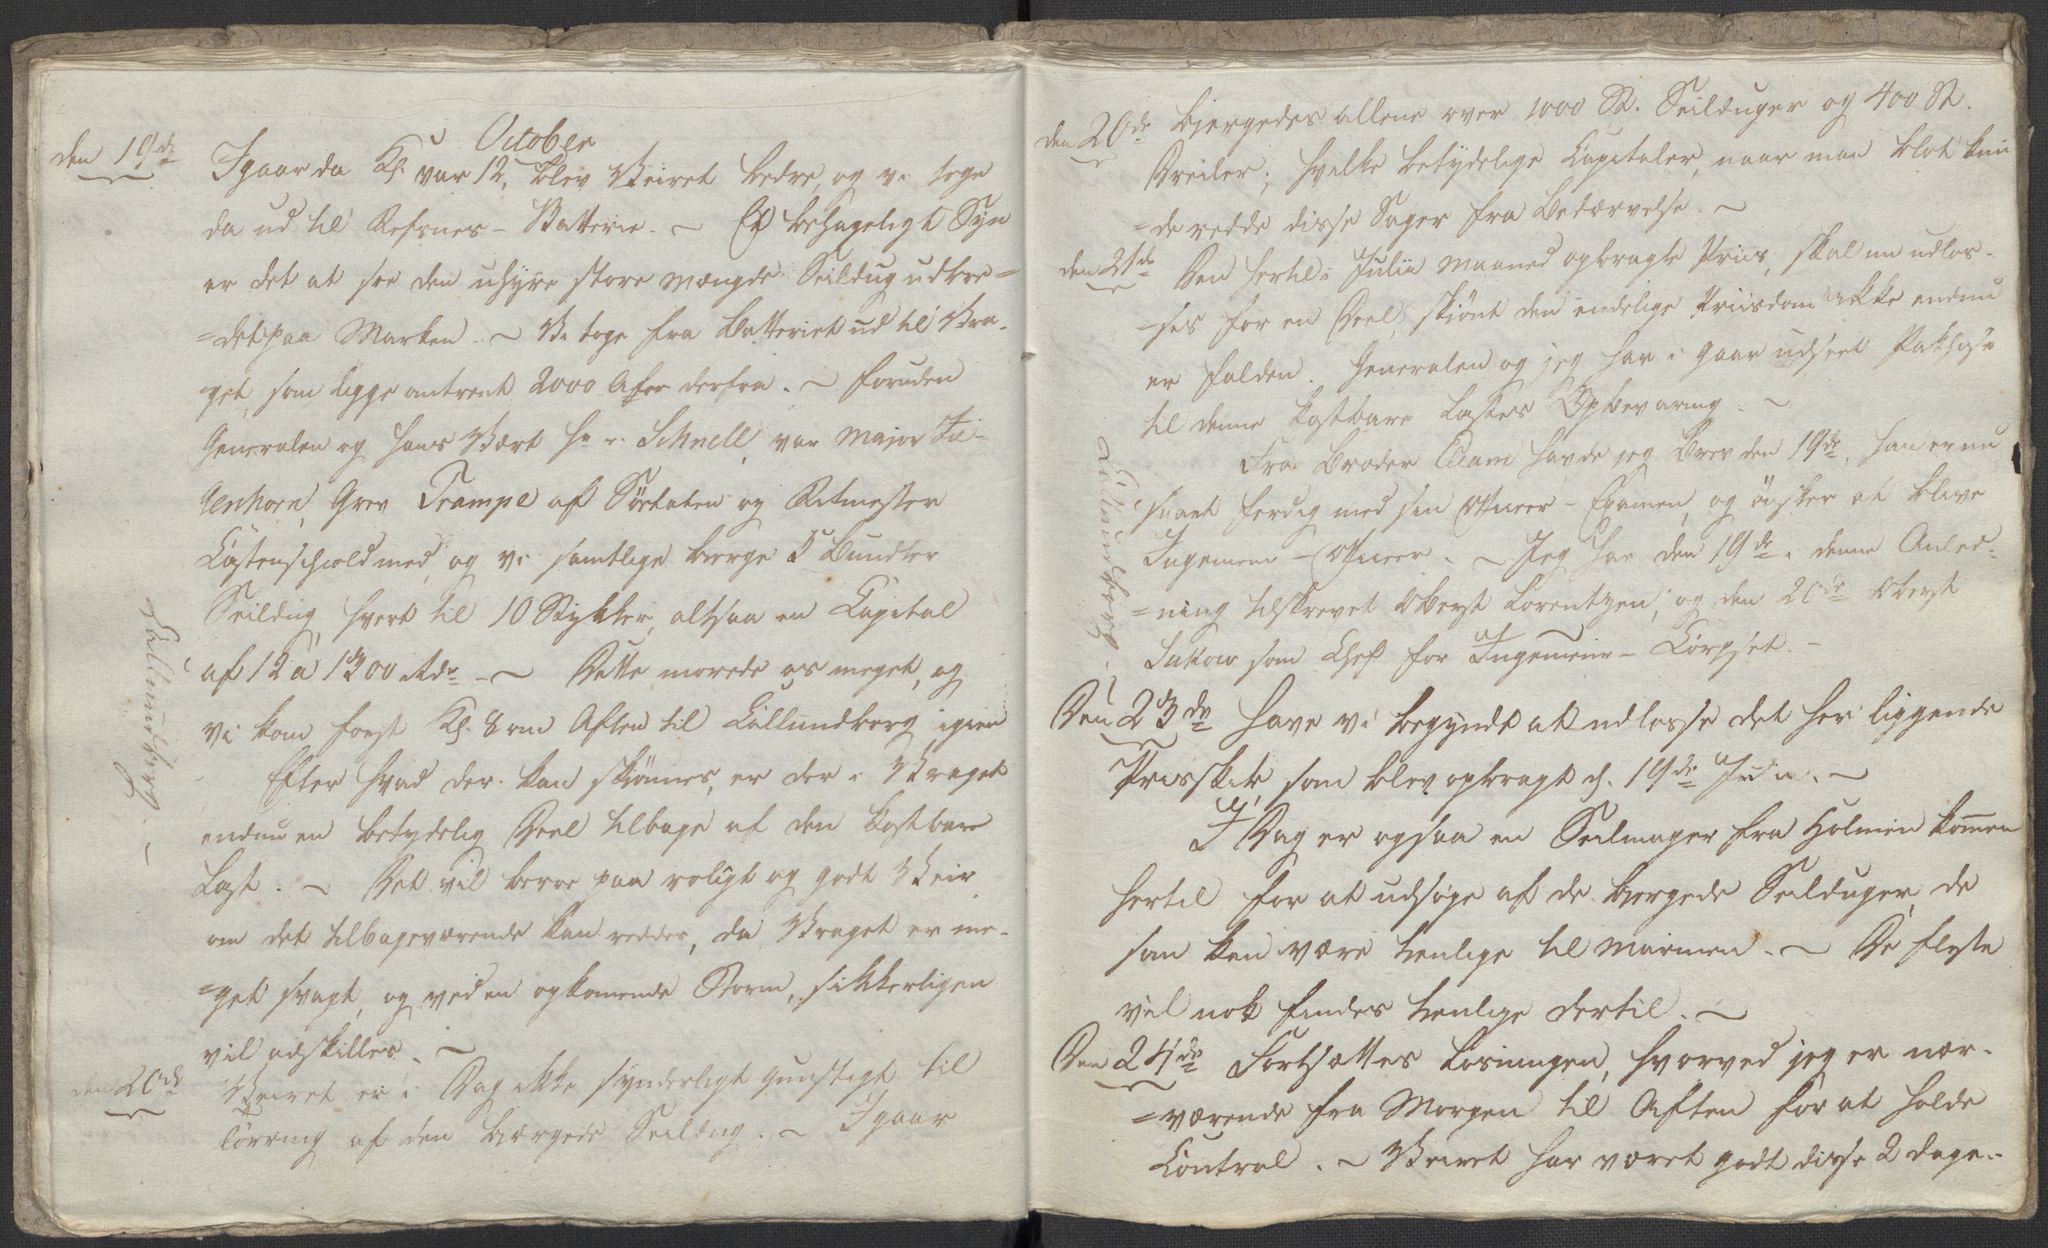 October
den 19de Igaar da Kl. var 12, blev Veiret bedre, og vi toge
da ud til Refsnes-Batterie. ~ Et behageligt Syn
er det at see den uhyre store Mængde Seildug udbre=
=det paa Marken. ~ Vi toge fra Batteriet ud til Vra-
get, som ligge omtrent 2000 Alen derfra. ~ Foruden
Generalen og hans Vært Hr. Schnell, var Major Fü-
Genhorn, Grev Trampe af Söetaten og Ritmester
Castenschiold med, og vi samtlige berge 5 Bundter
Seildug, hvert til 10 Stykker, altsaa en Capital
af 12 a 1300 Rdr. ~ Dette morede os meget, og
vi kom først Kl. 8 om Aften til Callundborg igien
Efter hvad der kan skiönnes, er der i Vraget
endnu en betydelig Deel tilbage af den kostbare
Last. ~ Det vil beroe paa roligt og godt Veir
om det tilbageværende kan reddes, da Vraget er me-
=get svagt, og ved en opkomende Storm, sikkerligen
vil adskilles. ~
den 20de Veiret er i Dag ikke synderligt gunstigt til
Törring af den biergede Seildug. ~ Igaar
Callundborg. ~
den 20de biergedes allene over 1000 St. Seilduger og 400 St.
Dreiler; hvilke betydelige Capitaler, naar man blot kun
=de redde disse Sager fra Bedærvelse. ~
den 21de Den hertil i Julii Maaned opbragte Priis, skal nu udlos-
=ses for en Deel, skiönt den endelige Priisdom ikke endnu
er falden. Generalen og jeg har i Gaar udseet Pakhuse
til denne kostbare Lastes Opbevaring. ~
Fra Broder Adam havde jeg Brev den 19de, han er nu
snart ferdig med sin Officeer-Examen, og önsker at blive
Ingenieur-Officeer. ~ Jeg har den 19de i denne Anled-
=ning tilskrevet Oberst Lorentzen, og den 20de Oberst
Sukow som Chef for Ingenieur-Corpset. ~
Callundborg. ~
Den 23de have vi begyndt at udlosse det her liggende
Priisskib, som blev opbragt d. 19de Julii. ~
I Dag er ogsaa en Seilmager fra Holmen kommen
hertil for at udsöge af de biergede Seilduger, de
som kan være tienlige til Marinen. ~ De fleste
vil nok findes tienlige dertil. ~
Den 24de Fortsættes Losningen, hvorved jeg er nær-
=værende fra Morgen til Aften for at holde
Control. ~ Veiret har været godt disse 2 Dage. ~